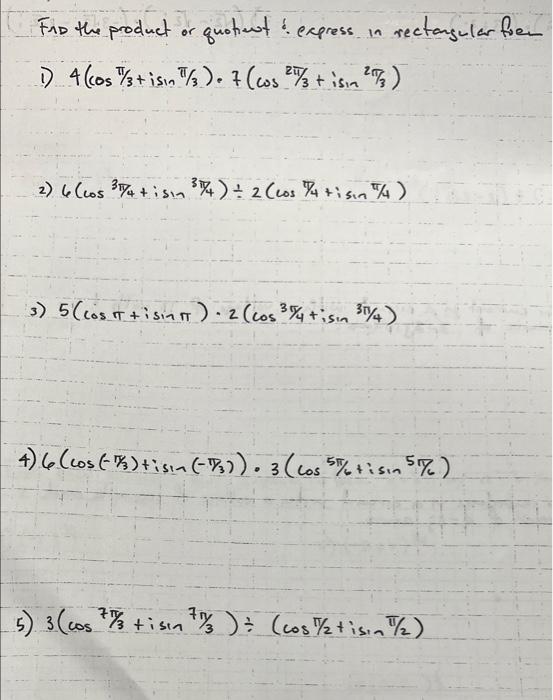 FIND the product or quotient & express in rectangular form
1) 4(cos π/3 + i sin π/3) • 7(cos 2π/3 + i sin 2π/3)
2) 6(cos 3π/4 + i sin 3π/4) ÷ 2(cos π/4 + i sin π/4)
3) 5(cos π + i sin π) · 2(cos 3π/4 + i sin 3π/4)
4) 6(cos(-π/3) + i sin(-π/3)) • 3(cos 5π/6 + i sin 5π/6)
5) 3(cos 7π/3 + i sin 7π/3) ÷ (cos π/2 + i sin π/2)